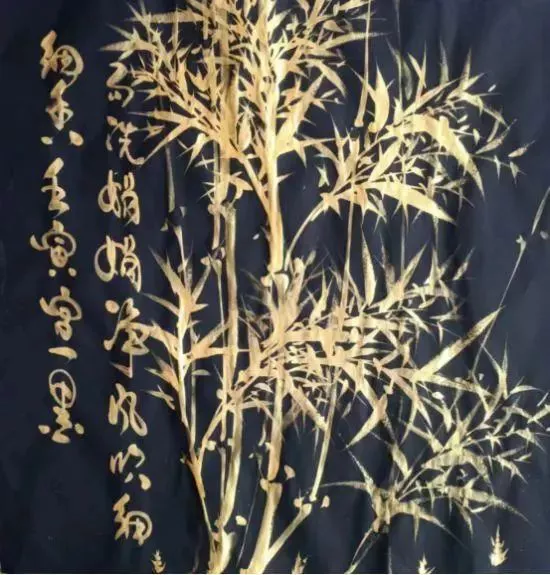 雨洗娟娟净风吹细
细香壬寅一墨